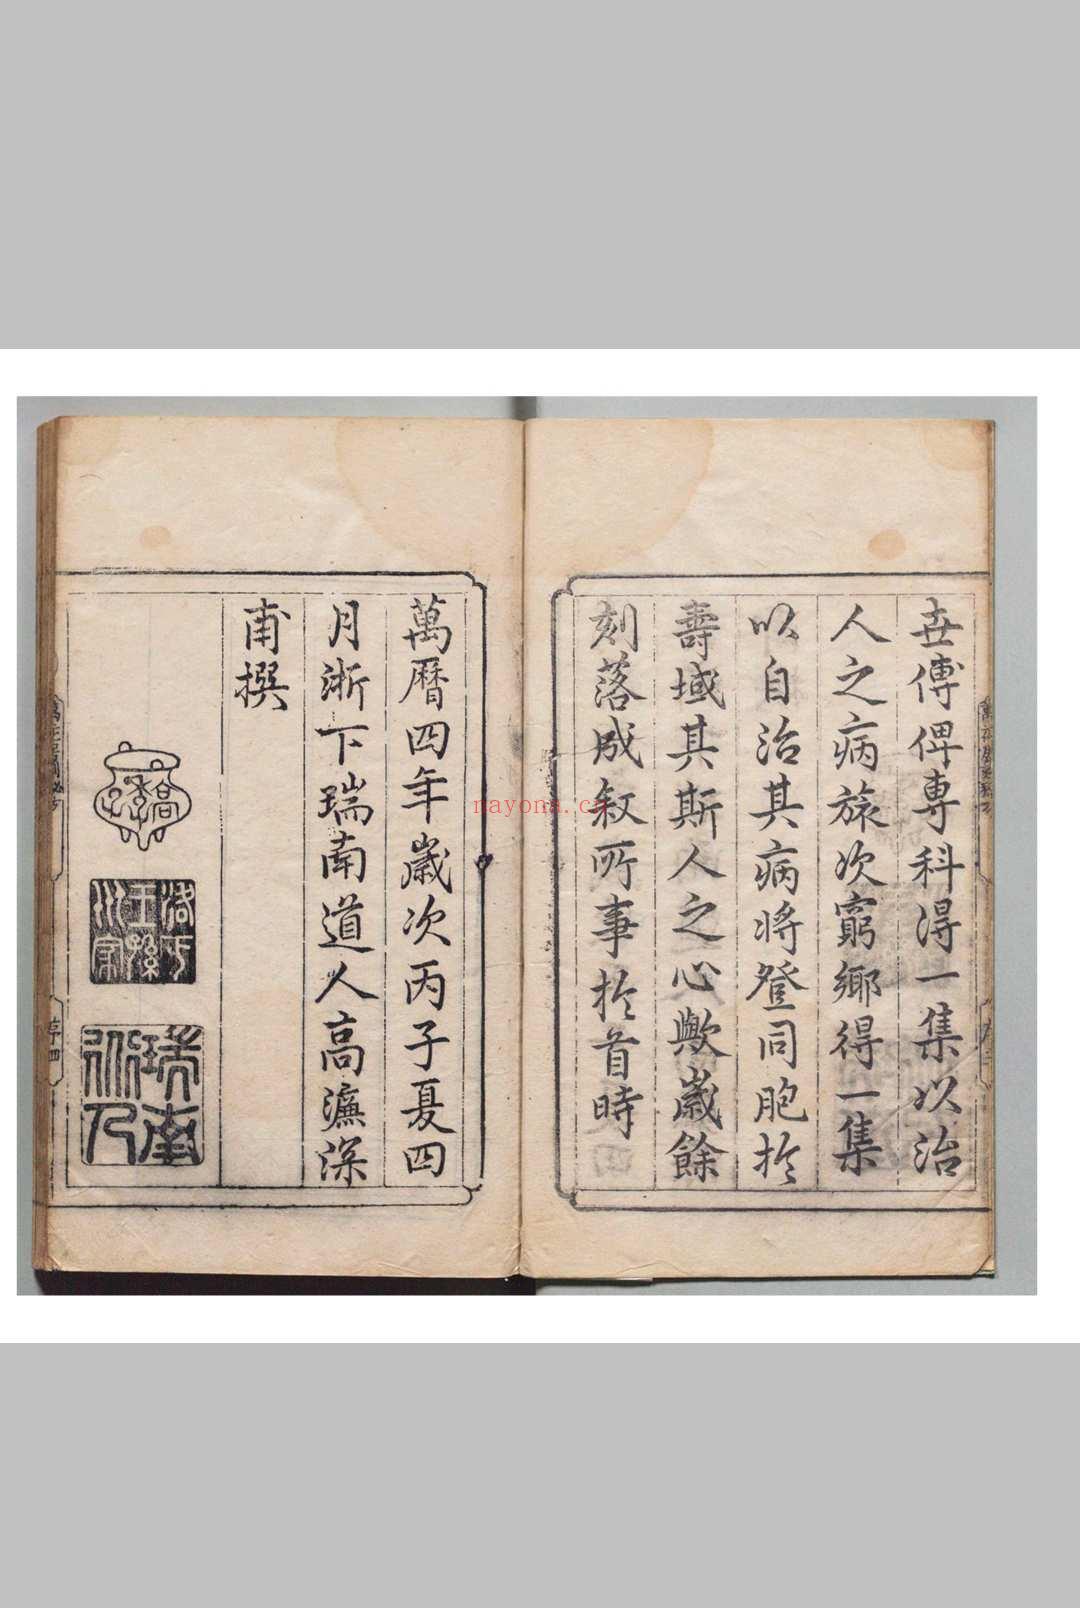 世傳俾專科得一集以治
人之病旅次窮鄉得一集
以自治其病將登同胞於
壽域其斯人之心歟歲餘
刻落成叙所事於首時
萬曆四年歲次丙子夏四
月浙下瑞南道人高濂深
甫撰
高
季子
瑞南
nayona.cn
序四